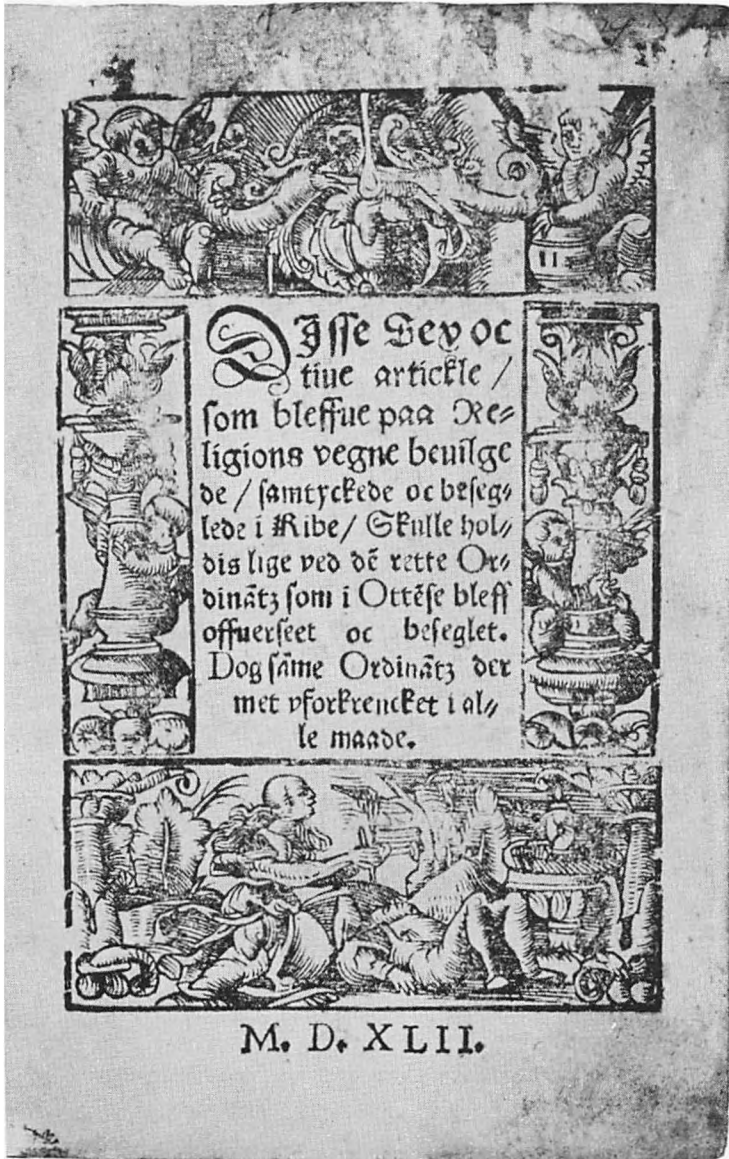 DJsse Sex oc
tiue artickle /
som bleffue paa Re⸗
ligions vegne beuilge
de / samtyckede oc beseg⸗
lede i Ribe / Skulle hol⸗
dis lige ved dē rette Or⸗
dinātz som i Ottēse bleff
offuerseet oc beseglet.
Dog sāme Ordinātz der
met vforkrencket i al⸗
le maade.
M. D. XLII.